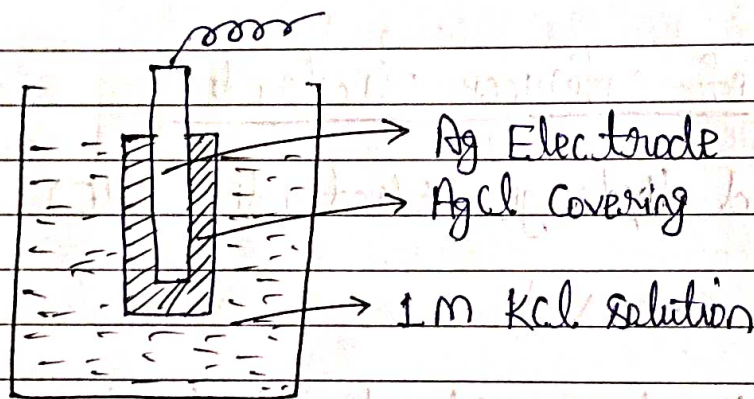 Ag Electrode
AgCl Covering
1 M KCl solution